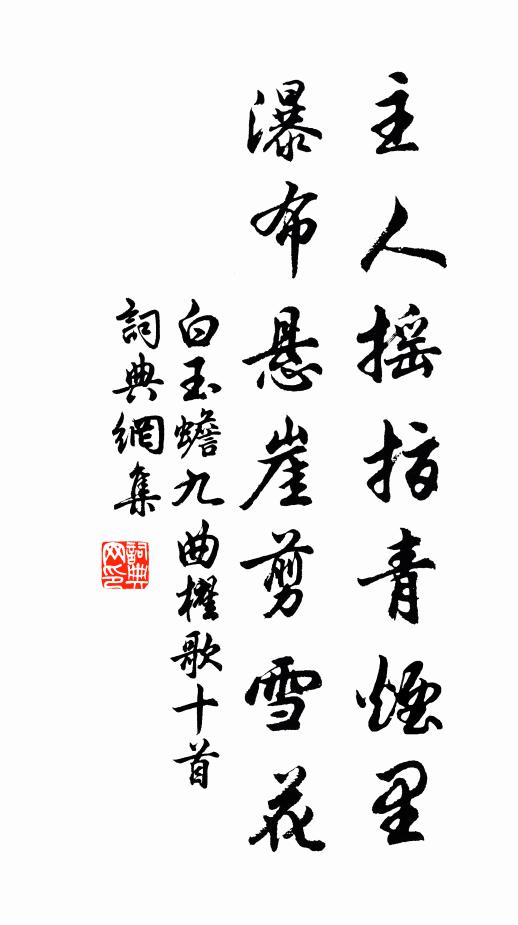 主人摇指青煙里
瀑布悬崖剪雪花
白玉蟾九曲櫂歌十首
詞典網集
詞典网印